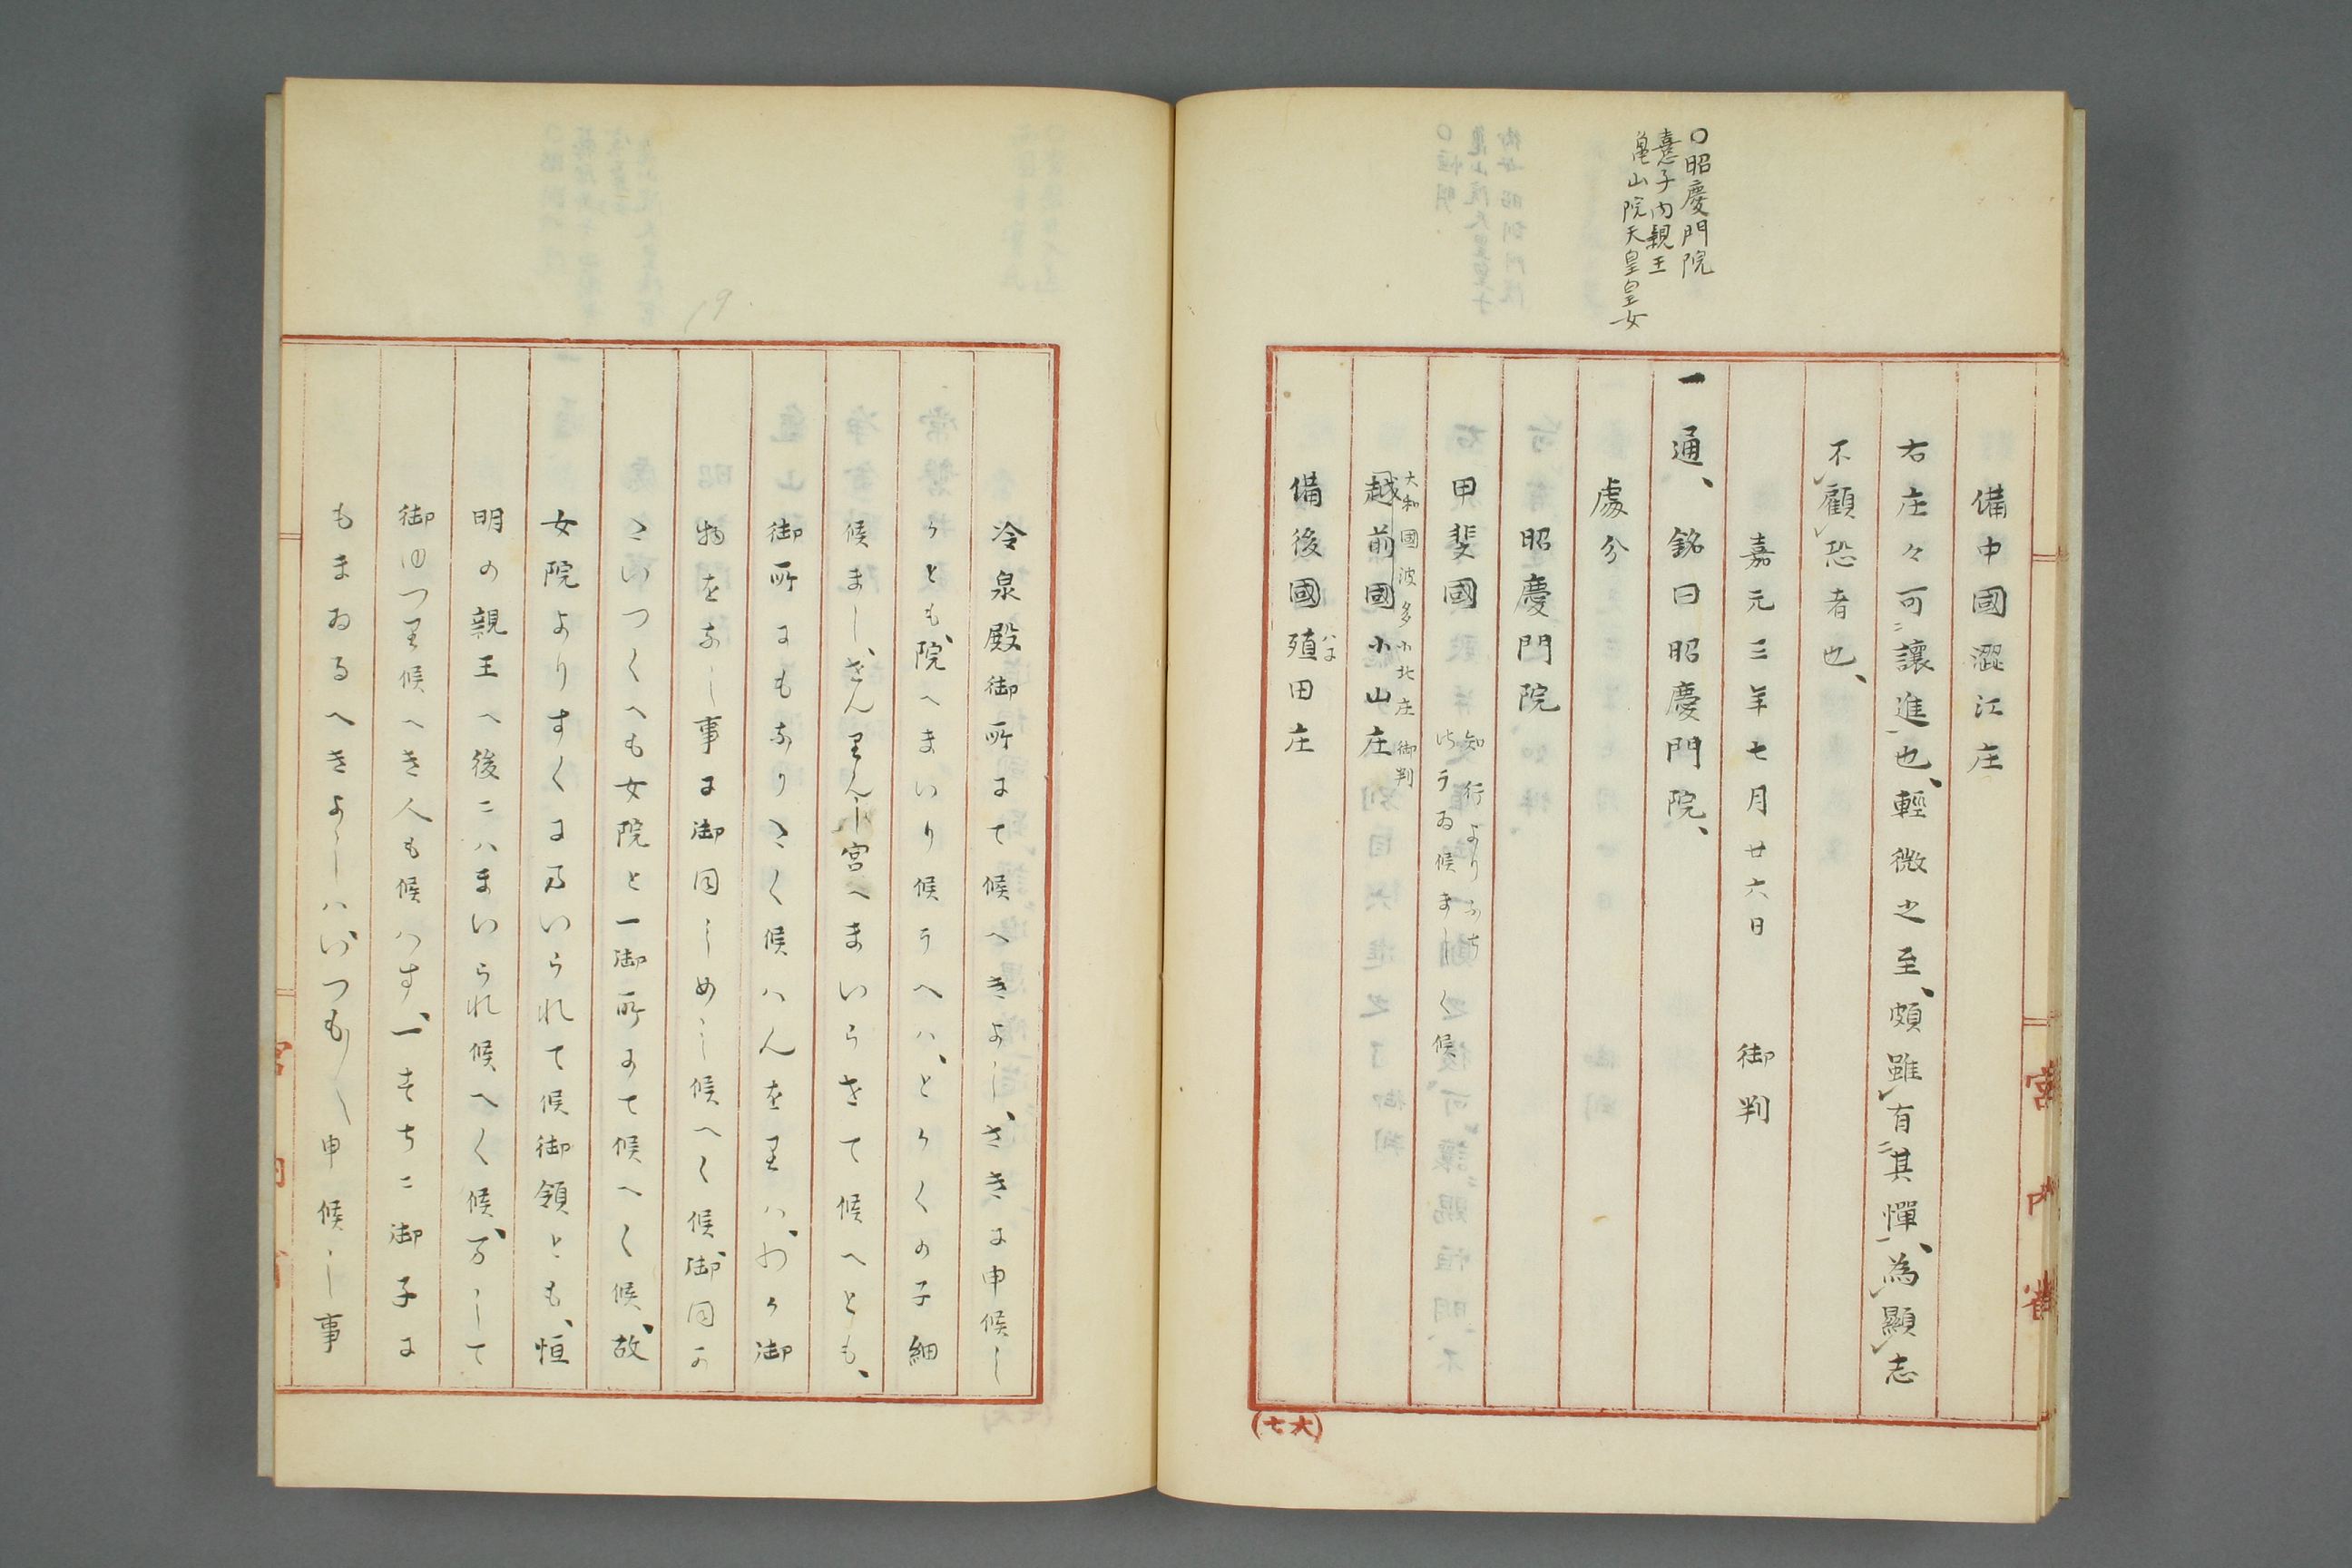 〇昭慶門院
憙子内親王
亀山院天皇皇女
備中國澀江庄
右庄々可讓進也、輕微之至、頗雖有其憚、為顯志
不顧恐者也、
嘉元三年七月廿六日 御判
一通、銘曰昭慶門院、
處分
昭慶門院
甲斐國
大和國波多小北庄 御判
越前國小山庄
備後國殖田庄
宮内省
(七大)
冷泉殿御所にて候へきよし、さきに申候し
かとも、院へまいり候うへハ、とかくの子細
候まし、きんりんし宮へまいらせて候へとも、
御所にもなりたく候ハんをりハ、わか御
物をなし事に御同しめし候へく候、御同所
たいつくへも女院と一御所にて候へく候、故
女院よりすくにまいられて候御領とも、恒
明の親王へ後ニハまいられ候へく候、万して
御ゆつり候へき人も候ハす、一すちニ御子に
もまゐるへきよしハ、いつも〱申候し事